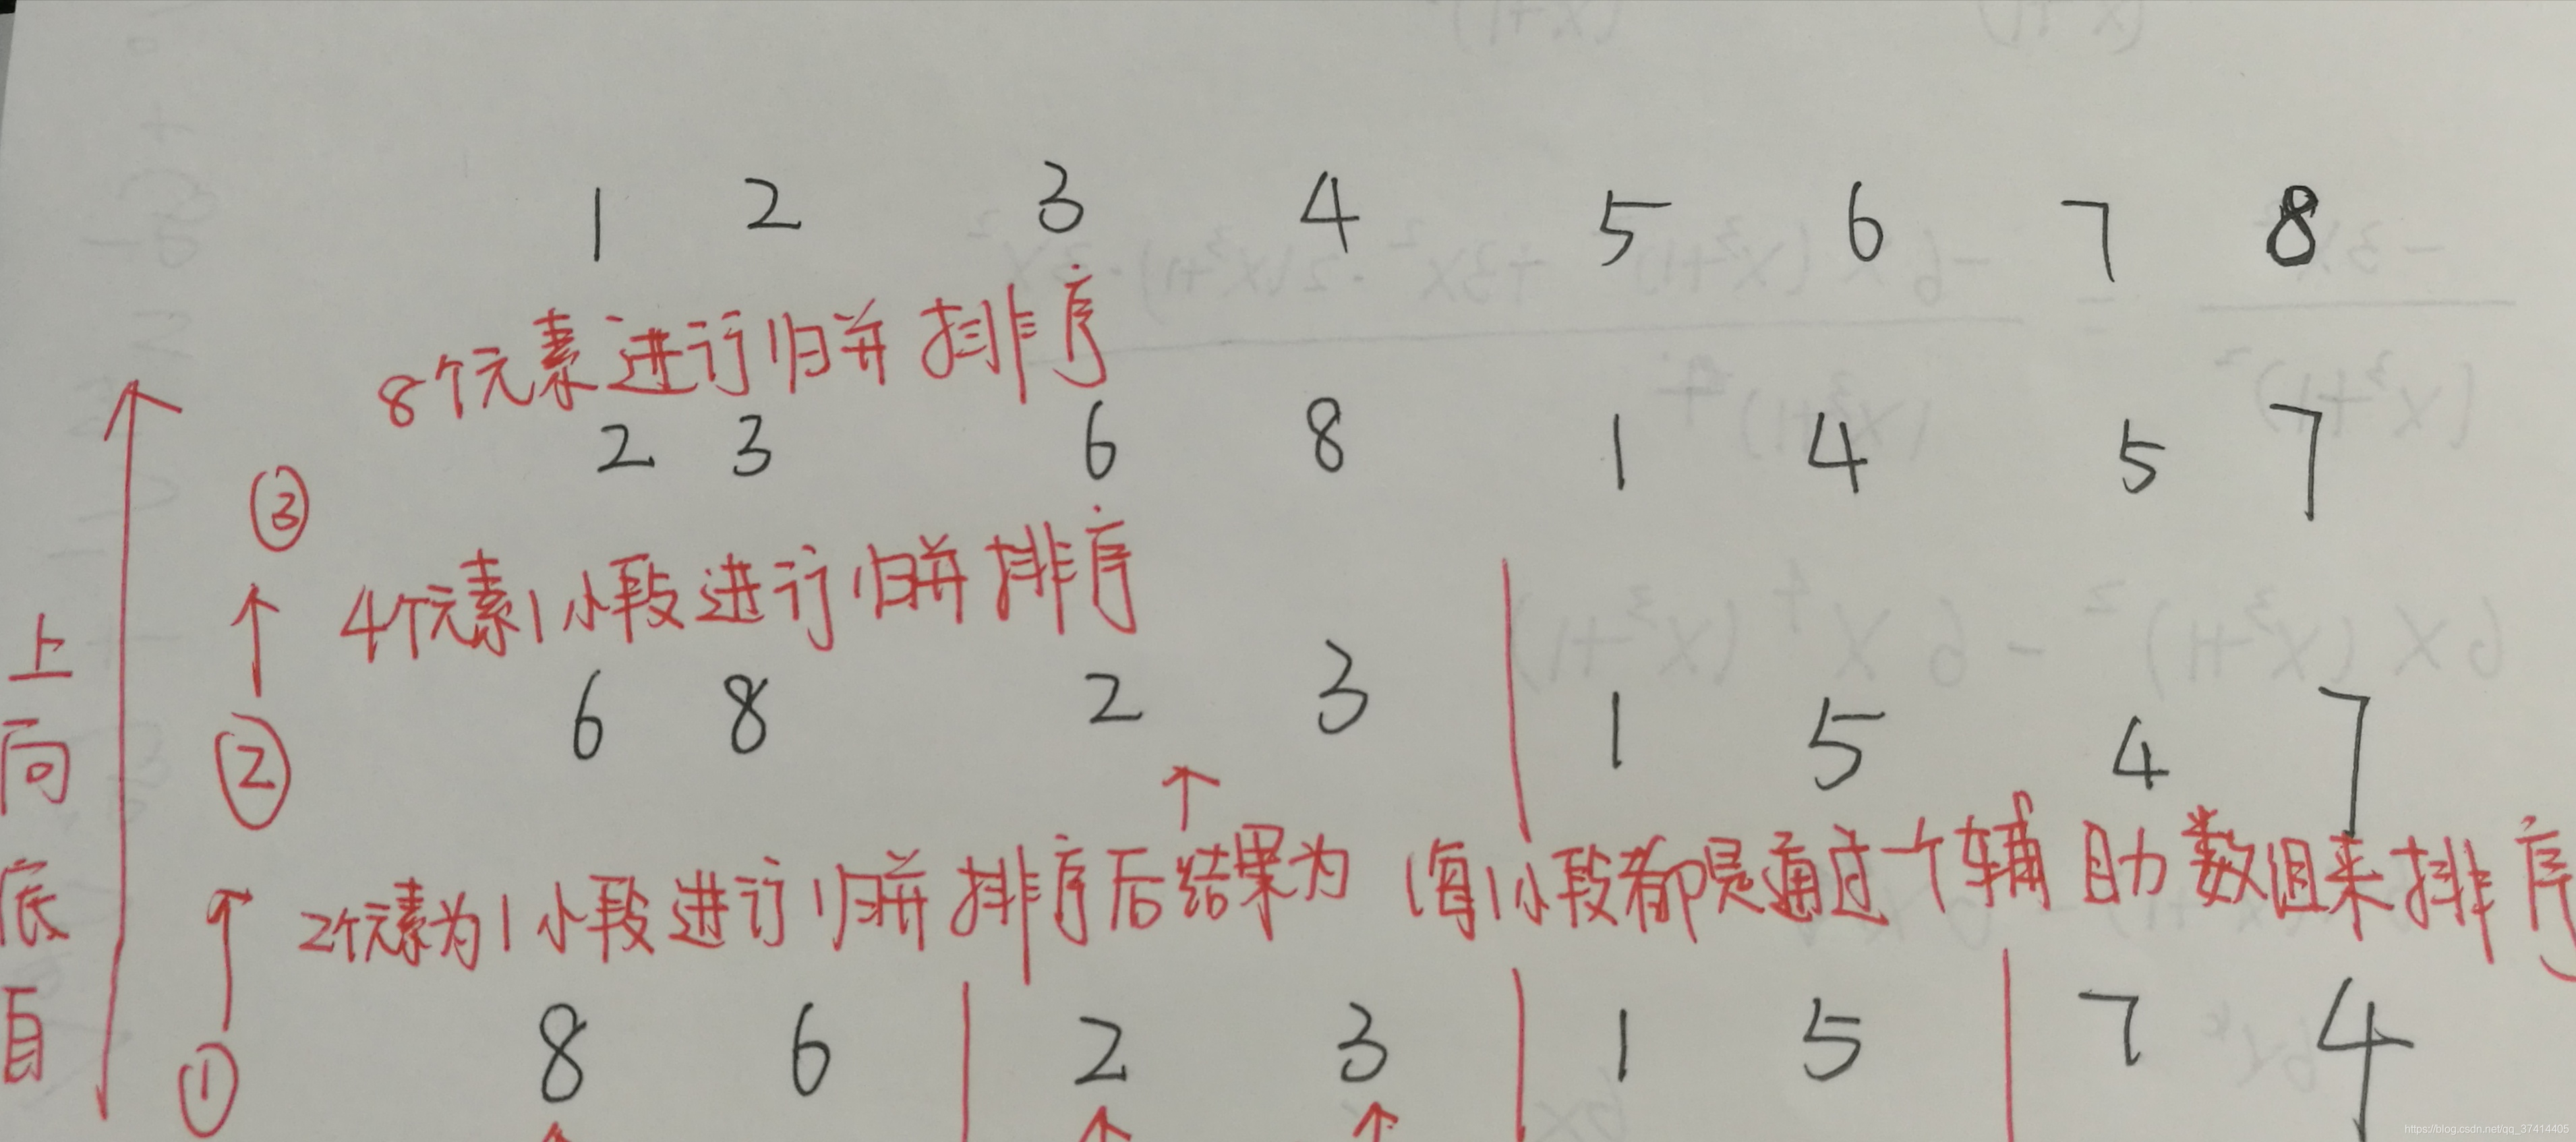 1 2 3 4 5 6 7 8
8个元素进行归并排序
2 3 6 8 1 4 5 7
③
4个元素1小段进行归并排序
6 8 2 3 1 5 4 7
②
2个元素为1小段进行归并排序后结果为 (每1小段都是通过一个辅助数组来排序)
8 6 2 3 1 5 7 4
①
自底向上
https://blog.csdn.net/qq_37414405